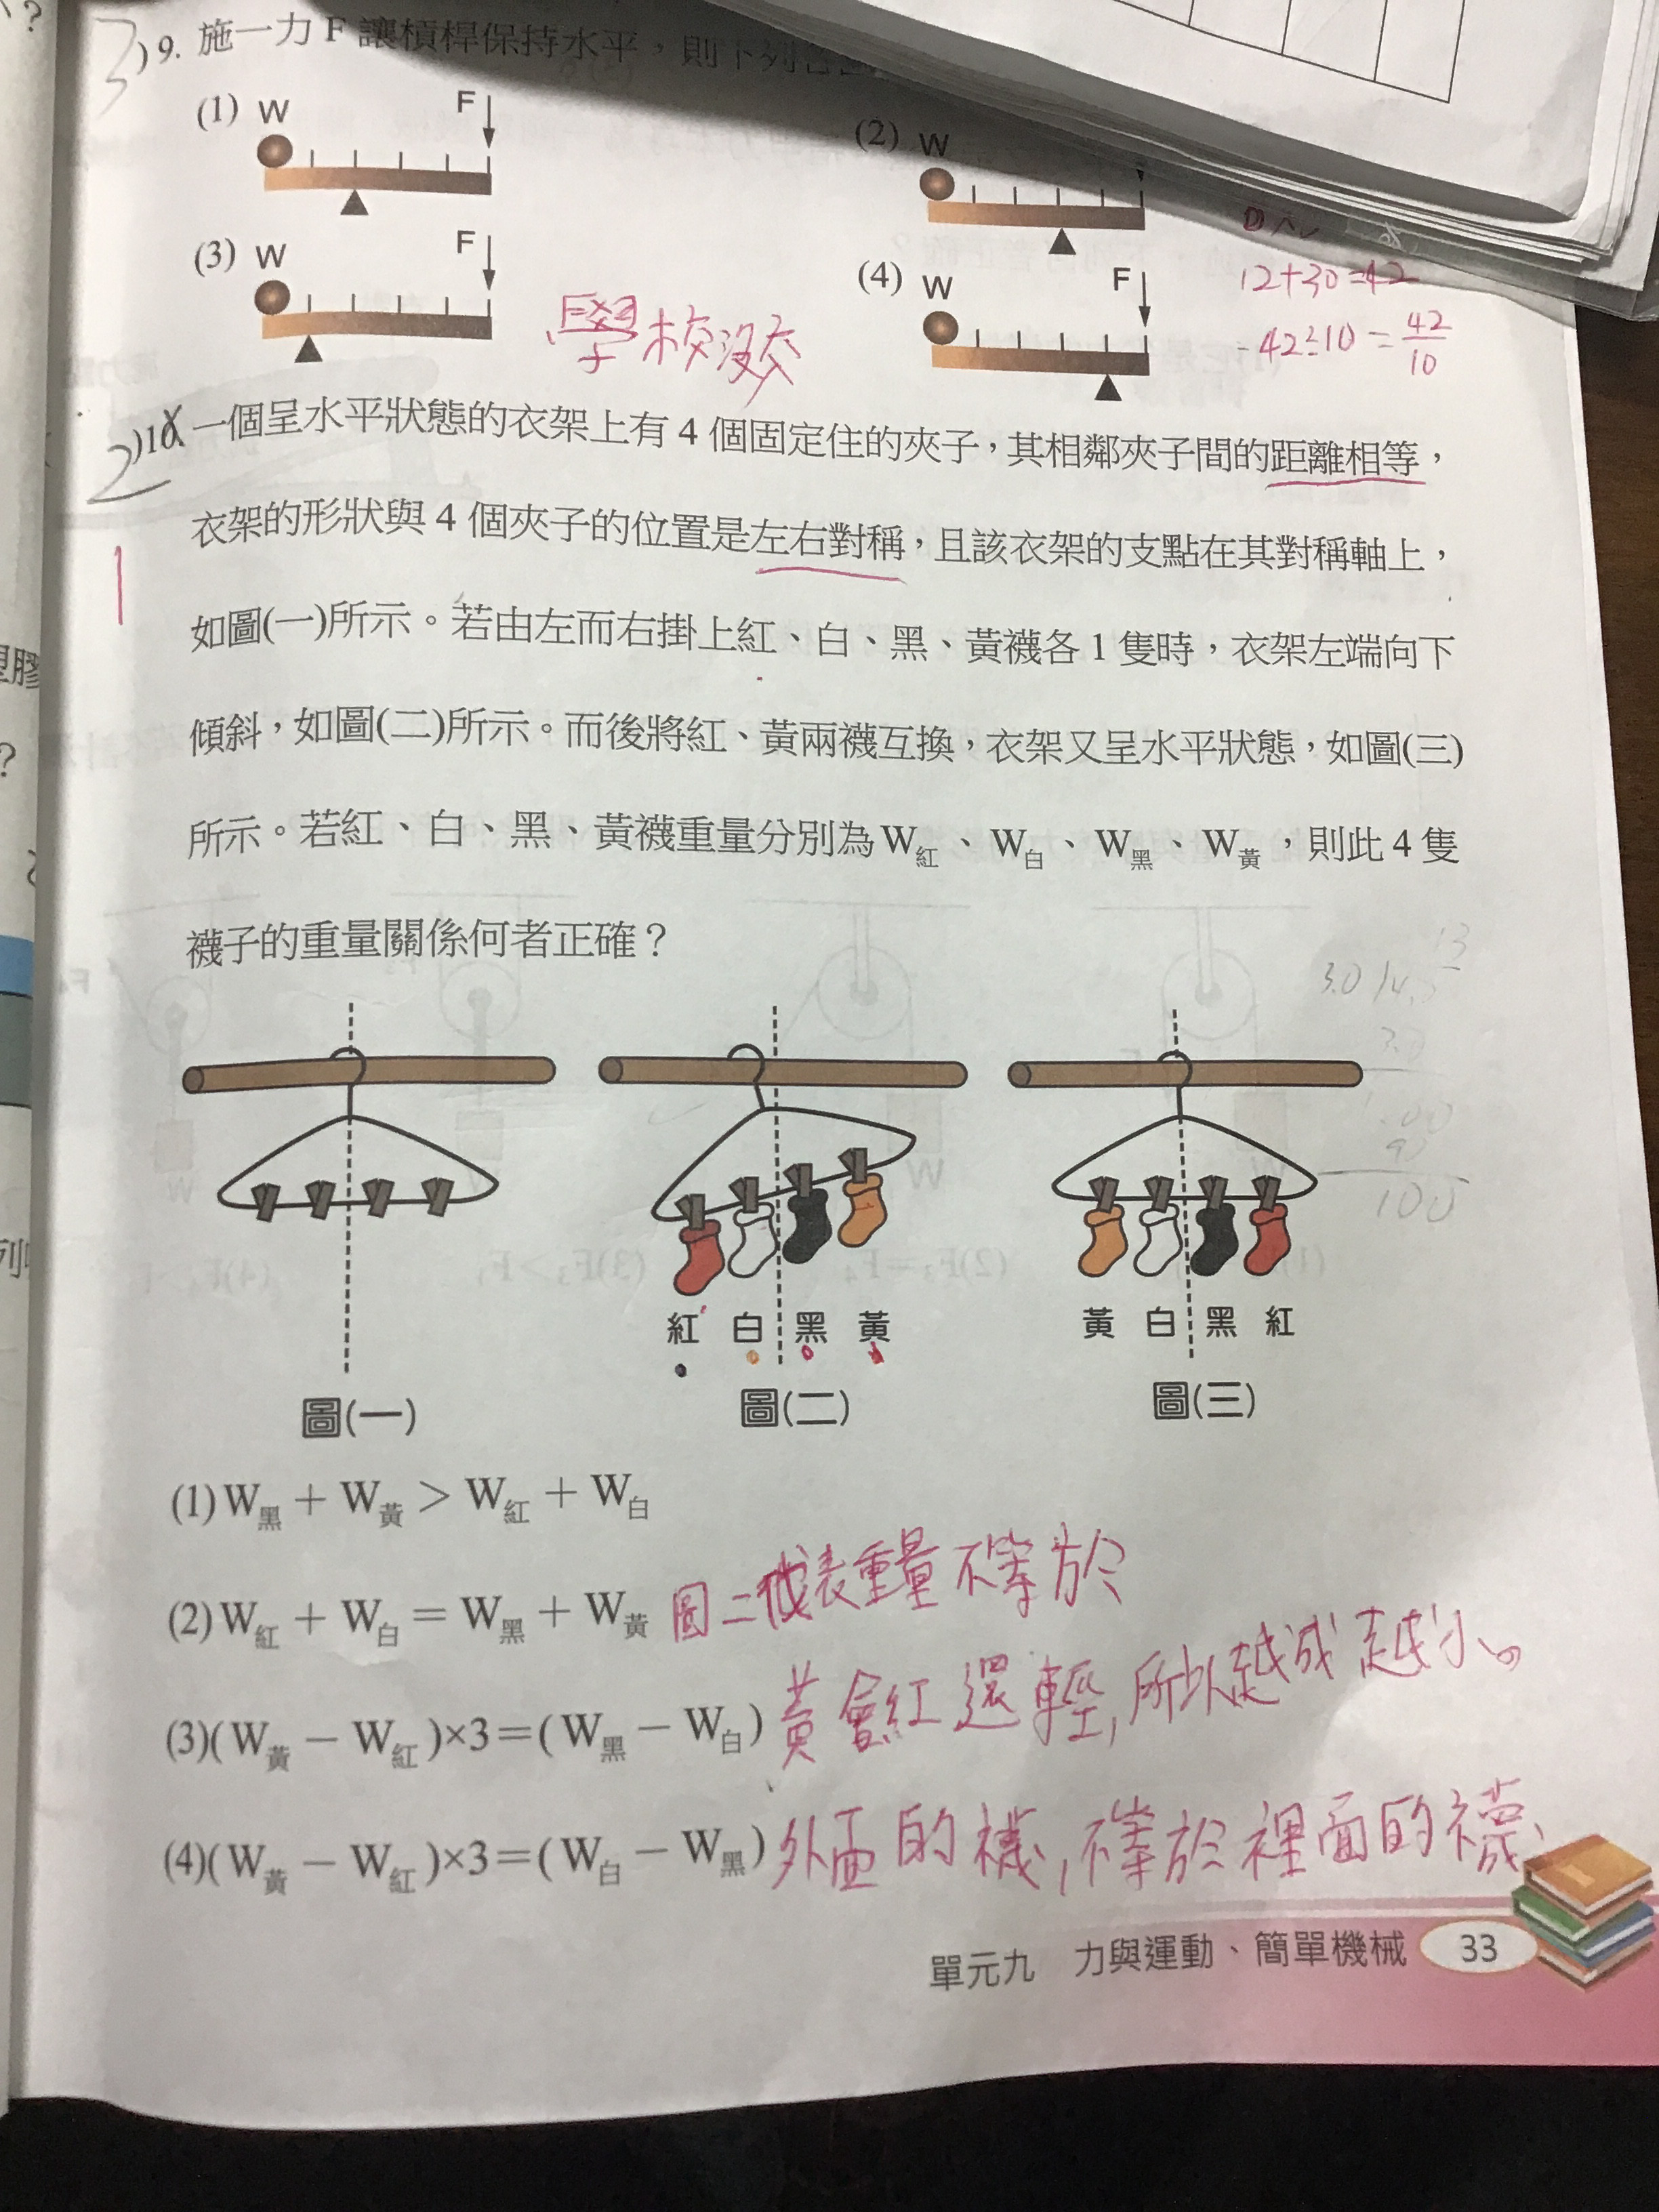 3)9. 施一力 F 讓槓桿保持水平，則下列
(1) W F
(2) W
(3) W F
(4) W F
學校沒交
12+30=42
42÷10=42/10
2)10. 一個呈水平狀態的衣架上有 4 個固定住的夾子，其相鄰夾子間的距離相等，
1
衣架的形狀與 4 個夾子的位置是左右對稱，且該衣架的支點在其對稱軸上，
如圖(一)所示。若由左而右掛上紅、白、黑、黃襪各 1 隻時，衣架左端向下
傾斜，如圖(二)所示。而後將紅、黃兩襪互換，衣架又呈水平狀態，如圖(三)
所示。若紅、白、黑、黃襪重量分別為W紅、W白、W黑、W黃，則此 4 隻
襪子的重量關係何者正確？
紅 白 黑 黃
黃 白 黑 紅
圖(一)
圖(二)
圖(三)
(1)W黑＋W黃＞W紅＋W白
(2)W紅＋W白＝W黑＋W黃 圖二代表重量不等於
(3)(W黃－W紅)×3＝(W黑－W白) 黃會紅還輕,所以越減越小。
(4)(W黃－W紅)×3＝(W白－W黑) 外面的襪,不等於裡面的襪
單元九 力與運動、簡單機械 33